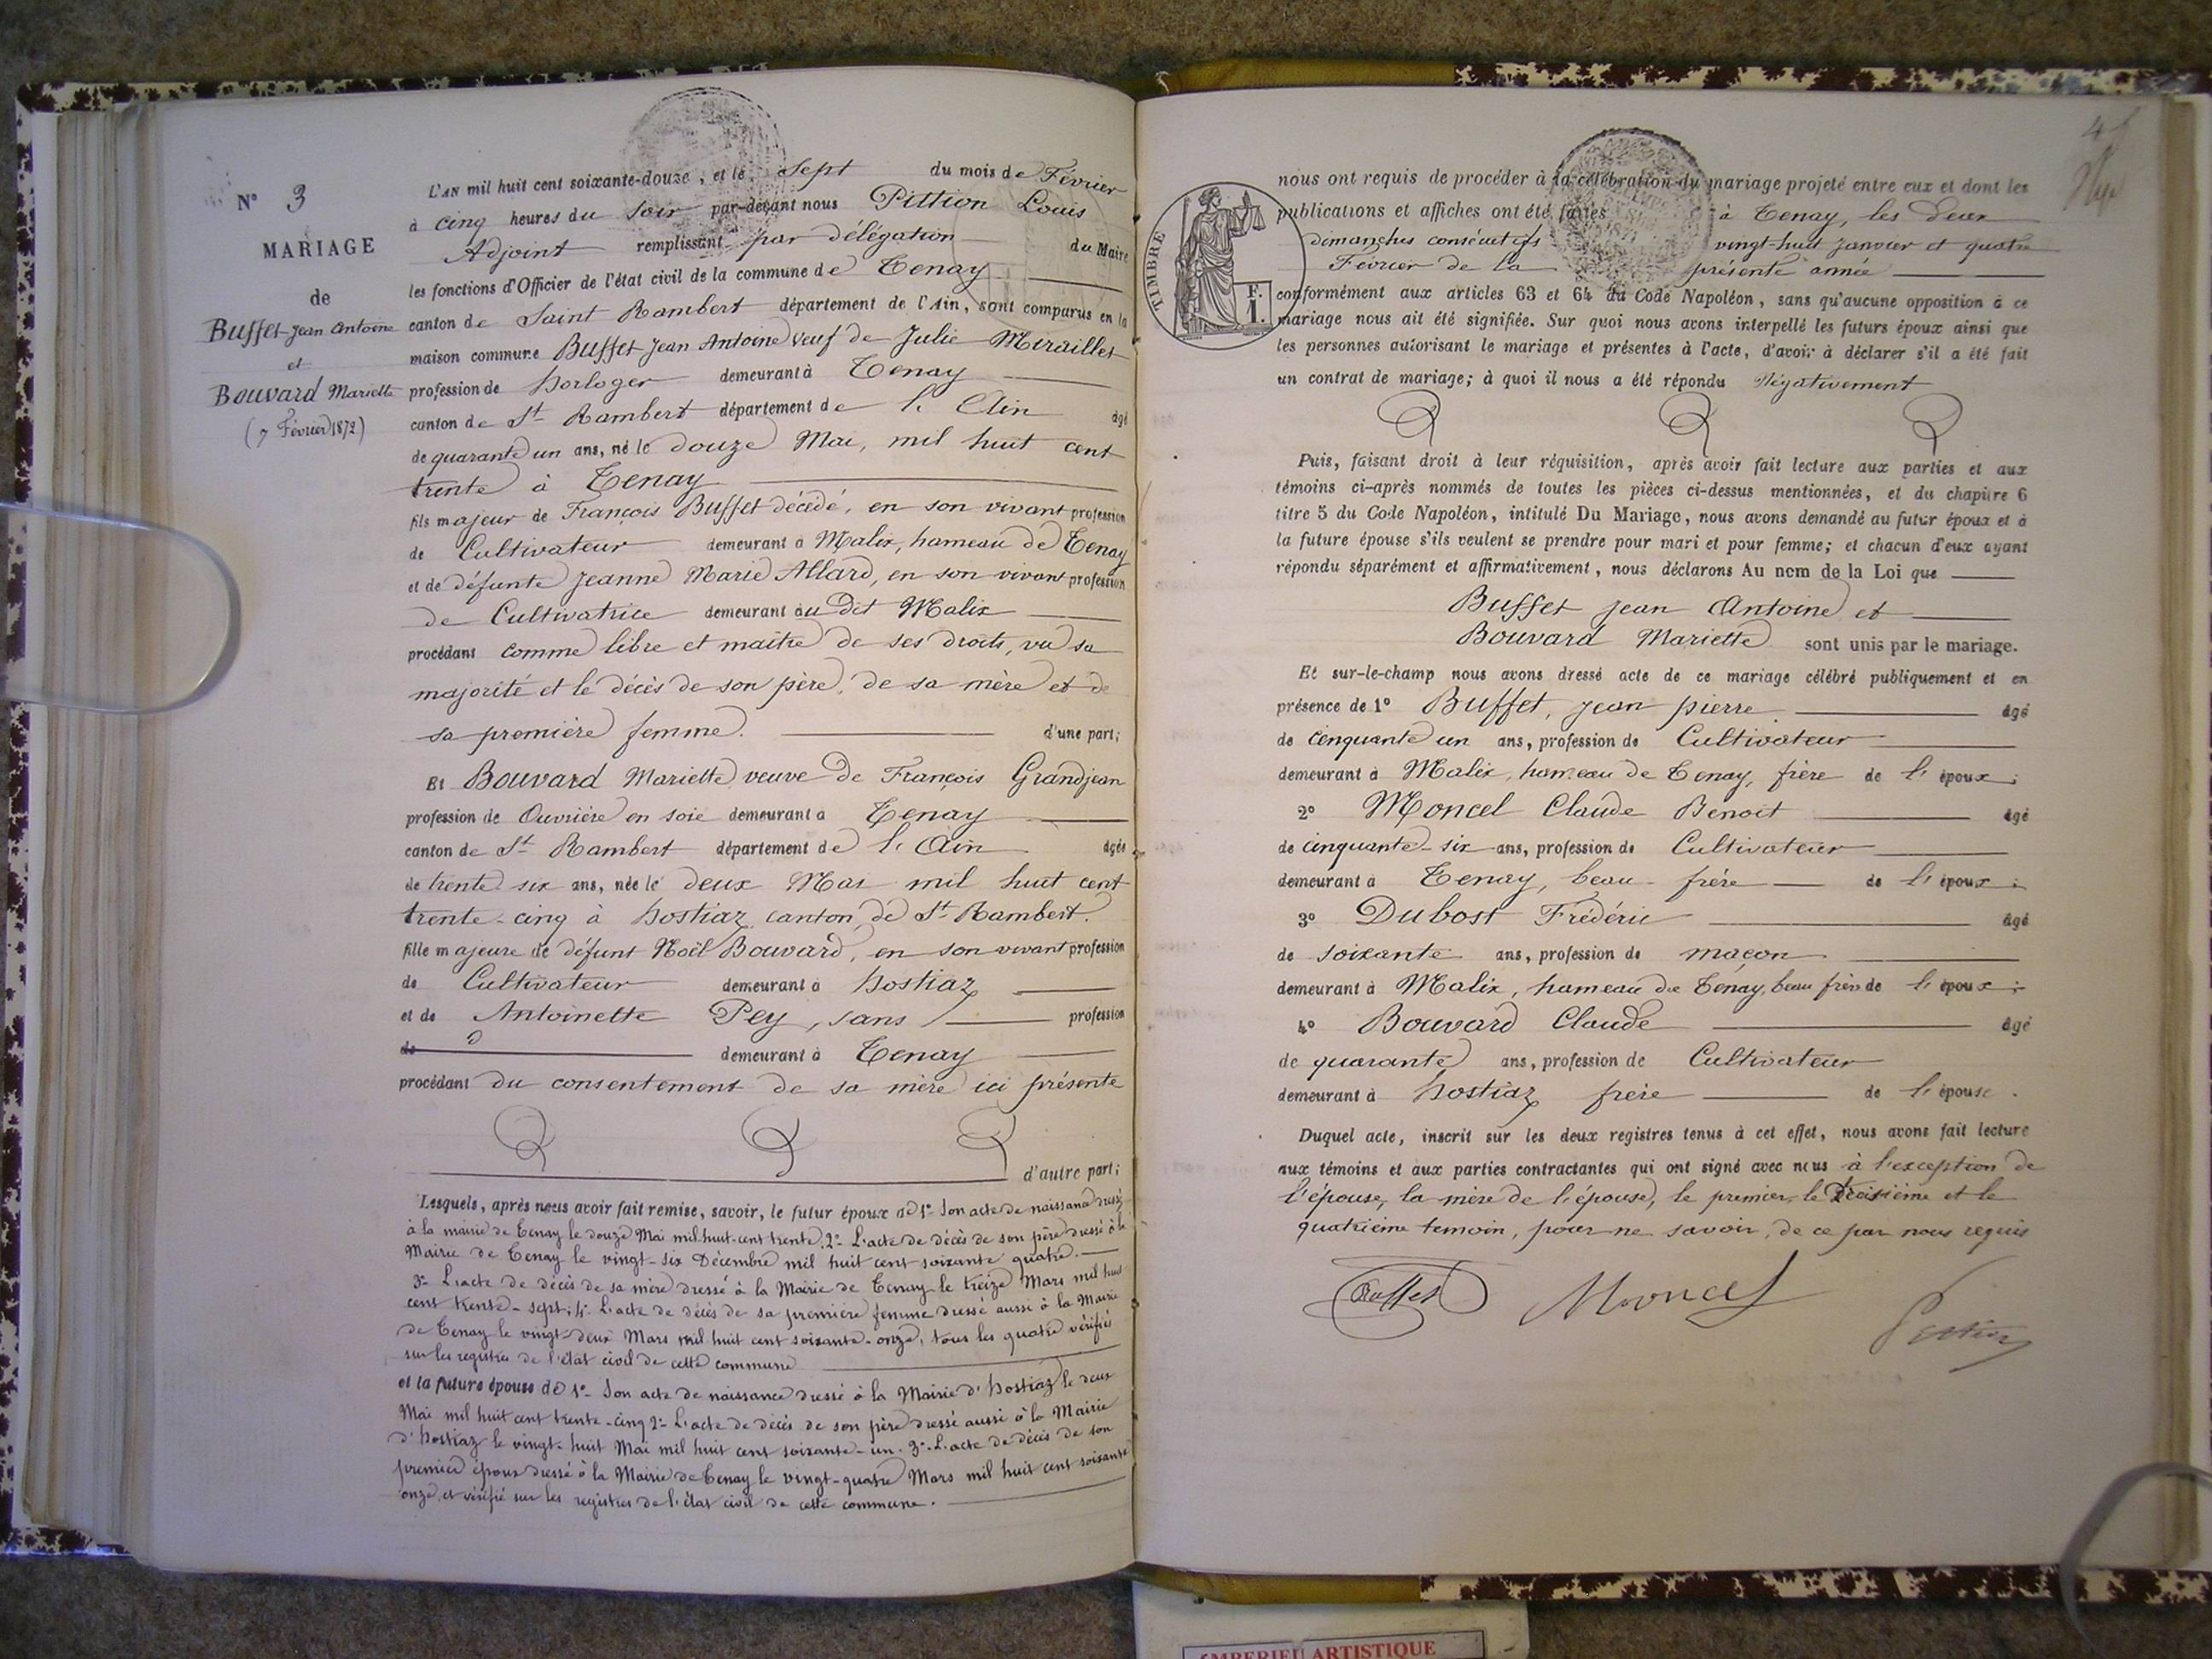 N° 3
MARIAGE
de
Buffet Jean Antoine
et
Bouvard Mariette
(7 Février 1872)
L'AN mil huit cent soixante-douze, et le Sept du mois de Février
à cinq heures du soir par-devant nous Pittion Louis
Adjoint remplissant par délégation du Maire
les fonctions d'Officier de l'état civil de la commune de Tenay
canton de Saint Rambert département de l'Ain, sont comparus en la
maison commune Buffet Jean Antoine veuf de Julie Miraillet
profession de horloger demeurant à Tenay
canton de St Rambert département de l'Ain âgé
de quarante un ans, né le douze Mai, mil huit cent
trente à Tenay
fils majeur de François Buffet décédé, en son vivant profession
de Cultivateur demeurant à Malix, hameau de Tenay
et de défunte Jeanne Marie Allard, en son vivant profession
de Cultivatrice demeurant au dit Malix
procédant comme libre et maître de ses droits, vu sa
majorité et le décès de son père, de sa mère et de
sa première femme. d'une part;
Et Bouvard Mariette veuve de François Grandjean
profession de Ouvrière en soie demeurant à Tenay
canton de St Rambert département de l'Ain âgée
de trente six ans, née le deux Mai mil huit cent
trente-cinq à hostiaz canton de St Rambert.
fille majeure de défunt Noël Bouvard, en son vivant profession
de Cultivateur demeurant à hostiaz
et de Antoinette Pey, sans profession
de demeurant à Tenay
procédant du consentement de sa mère ici présente
d'autre part;
Lesquels, après nous avoir fait remise, savoir, le futur époux de 1° Son acte de naissance dressé
à la mairie de Tenay le douze Mai mil huit-cent trente. 2° L'acte de décès de son père dressé à la
Mairie de Tenay le vingt-six Décembre mil huit cent soixante quatre.
3° L'acte de décès de sa mère dressé à la Mairie de Tenay le treize Mars mil huit
cent trente-sept; 4° L'acte de décès de sa première femme dressé aussi à la Mairie
de Tenay le vingt-deux Mars mil huit cent soixante-onze, tous les quatre vérifiés
sur les registres de l'état civil de cette commune
et la future épouse de 1° Son acte de naissance dressé à la Mairie d'hostiaz le deux
Mai mil huit cent trente-cinq 2° L'acte de décès de son père dressé aussi à la Mairie
d'hostiaz le vingt-huit Mai mil huit cent soixante-un. 3° L'acte de décès de son
premier époux dressé à la Mairie de Tenay le vingt-quatre Mars mil huit cent soixante
onze, et vérifié sur les registres de l'état civil de cette commune.
TIMBRE
F.
1.
nous ont requis de procéder à la célébration du mariage projeté entre eux et dont les
publications et affiches ont été faites à Tenay, les deux
dimanches consécutifs vingt-huit Janvier et quatre
Février de la présente année
conformément aux articles 63 et 64 du Code Napoléon, sans qu'aucune opposition à ce
mariage nous ait été signifiée. Sur quoi nous avons interpellé les futurs époux ainsi que
les personnes autorisant le mariage et présentes à l'acte, d'avoir à déclarer s'il a été fait
un contrat de mariage; à quoi il nous a été répondu Négativement
Puis, faisant droit à leur réquisition, après avoir fait lecture aux parties et aux
témoins ci-après nommés de toutes les pièces ci-dessus mentionnées, et du chapitre 6
titre 5 du Code Napoléon, intitulé Du Mariage, nous avons demandé au futur époux et à
la future épouse s'ils veulent se prendre pour mari et pour femme; et chacun d'eux ayant
répondu séparément et affirmativement, nous déclarons Au nom de la Loi que
Buffet Jean Antoine et
Bouvard Mariette sont unis par le mariage.
Et sur-le-champ nous avons dressé acte de ce mariage célébré publiquement et en
présence de 1° Buffet, Jean pierre âgé
de cinquante un ans, profession de Cultivateur
demeurant à Malix, hameau de Tenay, frère de l'époux;
2° Moncel Claude Benoit âgé
de cinquante-six ans, profession de Cultivateur
demeurant à Tenay, beau-frère de l'époux;
3° Dubost Frédéric âgé
de soixante ans, profession de maçon
demeurant à Malix, hameau de Tenay, beau frère de l'époux;
4° Bouvard Claude âgé
de quarante ans, profession de Cultivateur
demeurant à hostiaz frère de l'épouse.
Duquel acte, inscrit sur les deux registres tenus à cet effet, nous avons fait lecture
aux témoins et aux parties contractantes qui ont signé avec nous à l'exception de
l'épouse, la mère de l'épouse, le premier, le troisième et le
quatrième temoin, pour ne savoir, de ce par nous requis
Buffet Moncel Pittion
AMBERIEU ARTISTIQUE